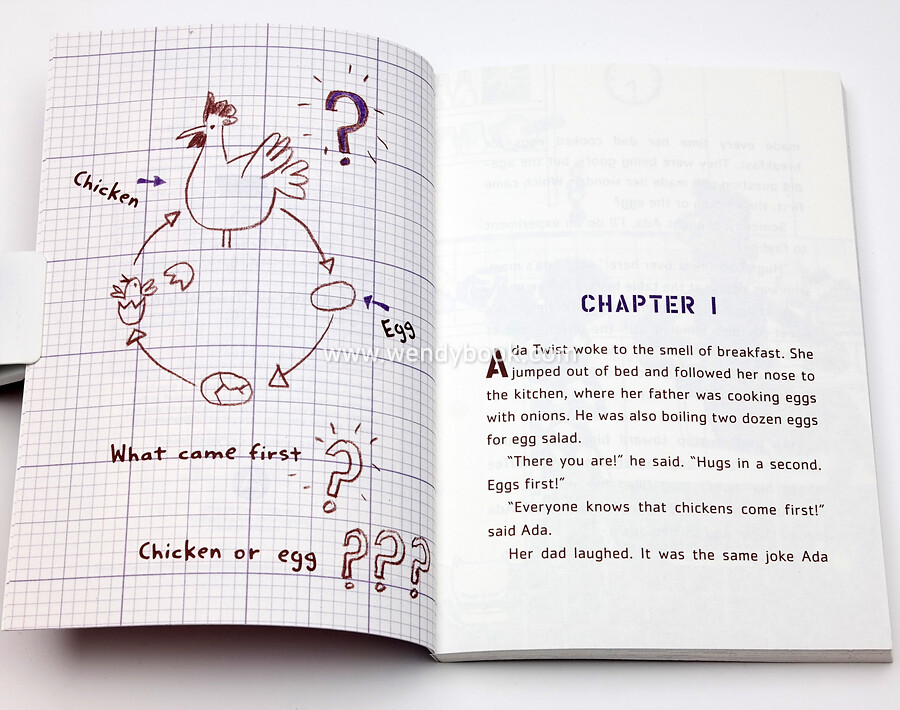 Chicken
Egg
What came first ?
Chicken or egg ???
?
www.wendybook.com
CHAPTER 1
Ada Twist woke to the smell of breakfast. She
jumped out of bed and followed her nose to
the kitchen, where her father was cooking eggs
with onions. He was also boiling two dozen eggs
for egg salad.
“There you are!” he said. “Hugs in a second.
Eggs first!”
“Everyone knows that chickens come first!”
said Ada.
Her dad laughed. It was the same joke Ada